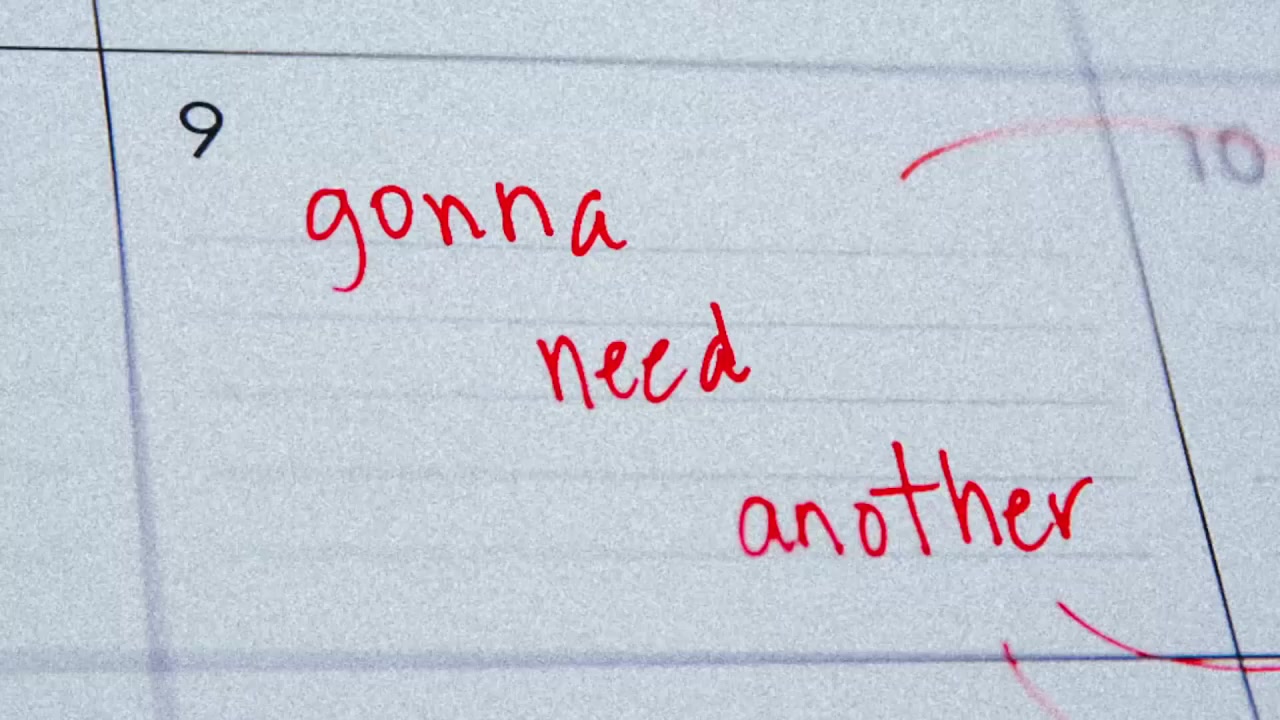 9
10
gonna
need
another